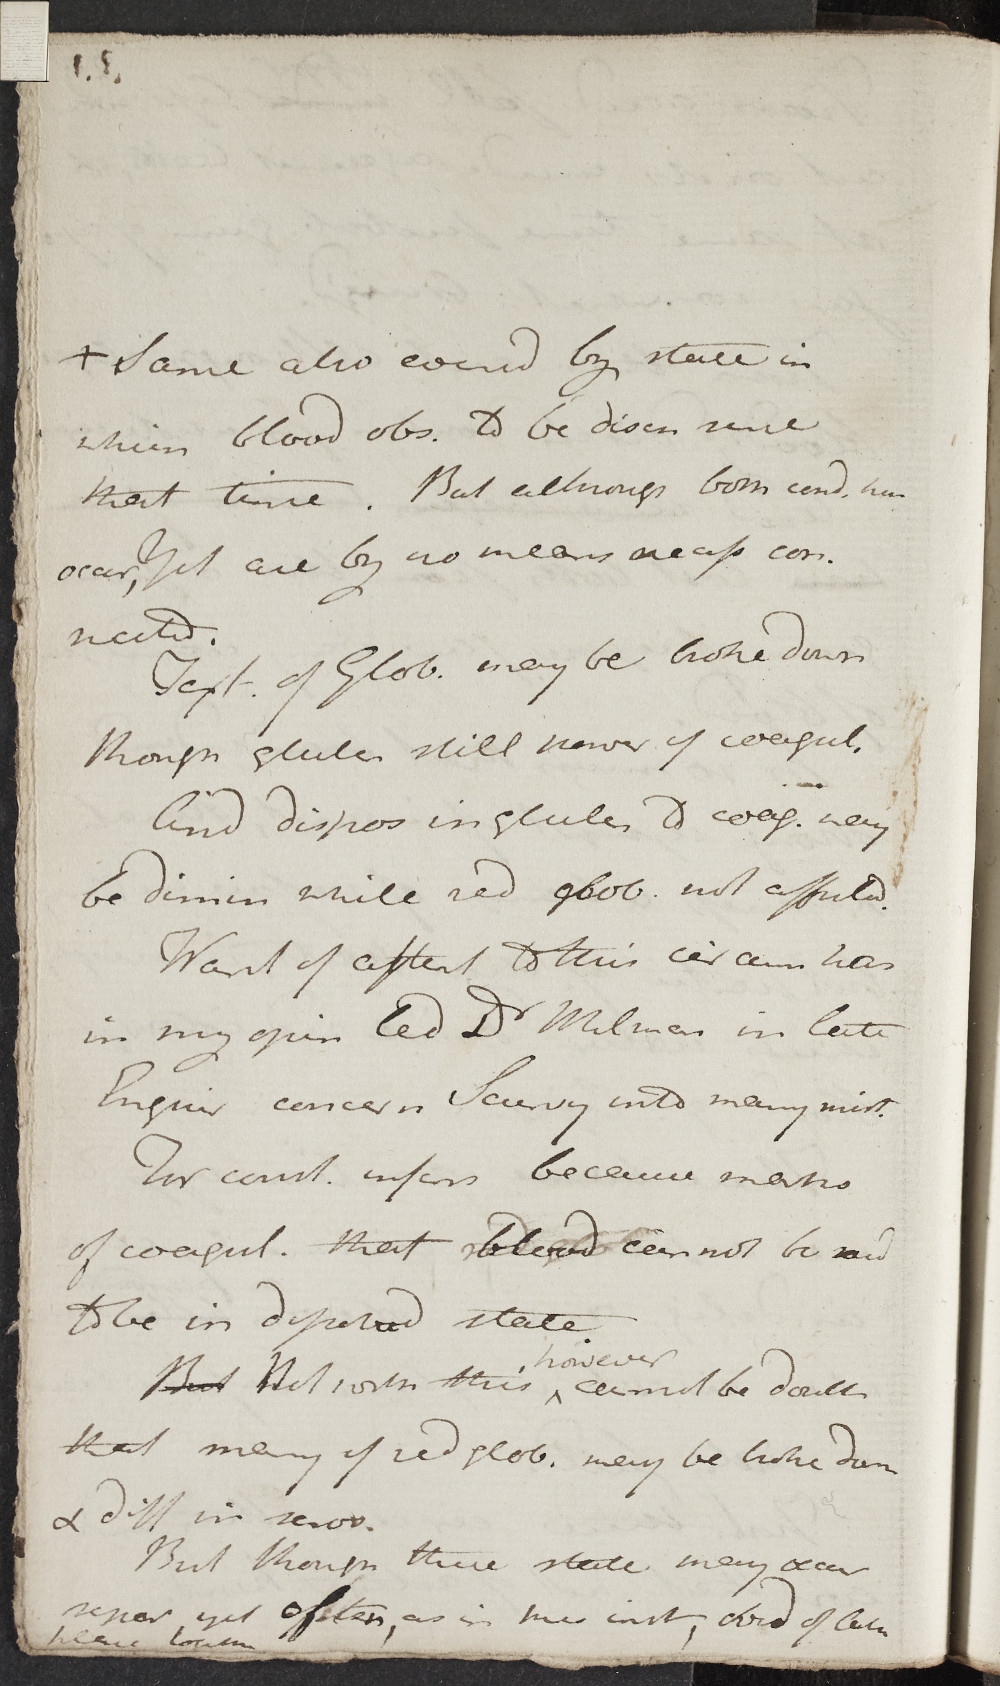 + Same also evinced by state in
which blood obs. to be disch since
that time. But although both cond. may
occur, Yet are by no means necess con.
nected.
Text. of Glob. may be broke down
though gluten still power of coagul.
And dispos in gluten to coag. may
be dimin while red glob. not affected.
Want of attent to this circum has
in my opin led Dr Milman in late
Enquir concern Scurvy into many mist.
For const. infers because marks
of coagul. that blood cannot be said
to be in dissolved state.
But Notwith this however cannot be doubt
that many of red glob. may be broke down
& diff in seros.
But though these state may occur
separ yet often, as in this inst,